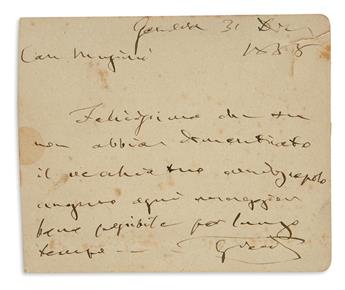 Genova 31 Dic
1888
Caro Mugnone
Felicissimo che tu
non abbia dimenticato
il vecchio tuo
auguro ogni maggior
bene possibile per lungo
tempo
GVerdi